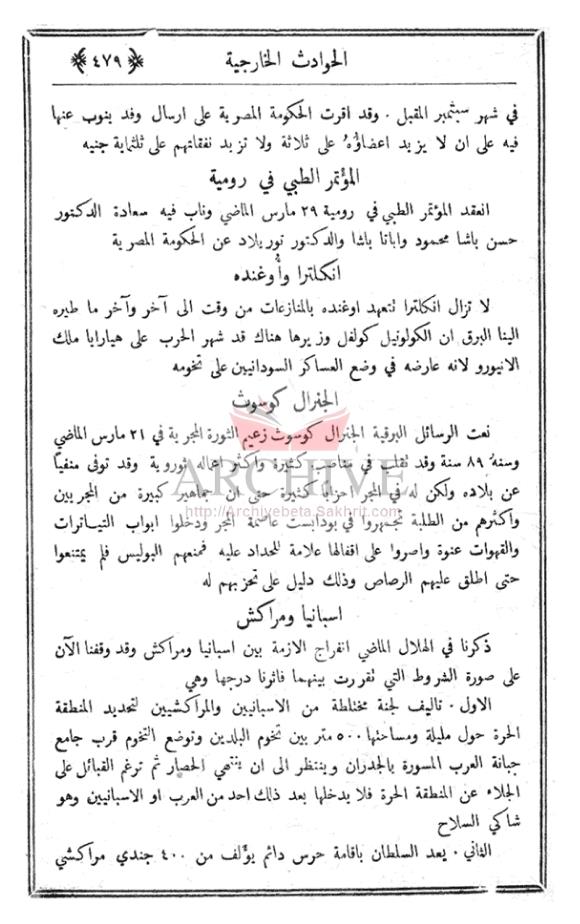 الحوادث الخارجية ﴿٤٧٩﴾
في شهر سبتمبر المقبل . وقد اقرت الحكومة المصرية على ارسال وفد ينوب عنها
فيه على ان لا يزيد اعضاؤهُ على ثلاثة ولا تزيد نفقاتهم على ثلثماية جنيه
المؤتمر الطبي في رومية
انعقد المؤتمر الطبي في رومية ٢٩ مارس الماضي وناب فيه سعادة الدكتور
حسن باشا محمود واباتا باشا والدكتور نوريلاد عن الحكومة المصرية
انكلترا وأوغنده
لا تزال انكلترا نتعهد اوغنده بالمنازعات من وقت الى آخر وآخر ما طيره
الينا البرق ان الكولونيل كولفل وزيرها هناك قد شهر الحرب على هيارابا ملك
الانيورو لانه عارضه في وضع العساكر السودانيين على تخومه
الجنرال كوسوث
نعت الرسائل البرقية الجنرال كوسوث زعيم الثورة المجرية في ٢١ مارس الماضي
وسنهُ ٨٩ سنة وقد نقلب في مناصب كثيرة واكثر اعماله ثوروية وقد توفى منفيًا
عن بلاده ولكن له في المجر احزابًا كثيرة حتى ان جماهير كبيرة من المجربين
واكثرهم من الطلبة تجمهروا في بودابست عاصمة المجر ودخلوا ابواب التياترات
والقهوات عنوة واصروا على اقفالها علامة للحداد عليه فمنعهم البوليس فلم يمتنعوا
حتى اطلق عليهم الرصاص وذلك دليل على تحزبهم له
اسبانيا ومراكش
ذكرنا في الهلال الماضي انفراج الازمة بين اسبانيا ومراكش وقد وقفنا الآن
على صورة الشروط التي نقررت بينهما فاثرنا درجها وهي
الاول . تاليف لجنة مختلطة من الاسبانيين والمراكشيين لتحديد المنطقة
الحرة حول مليلة ومساحتها ٥٠٠ متر بين تخوم البلدين وتوضع التخوم قرب جامع
جبانة العرب المسورة بالجدران وينتظر الى ان ينتهي الحصار ثم ترغم القبائل على
الجلاء عن المنطقة الحرة فلا يدخلها بعد ذلك احد من العرب او الاسبانيين وهو
شاكي السلاح
الثاني . يعد السلطان باقامة حرس دائم يؤلف من ٤٠٠ جندي مراكشي
ARCHIVE
http://Archivebeta.Sakhrit.com